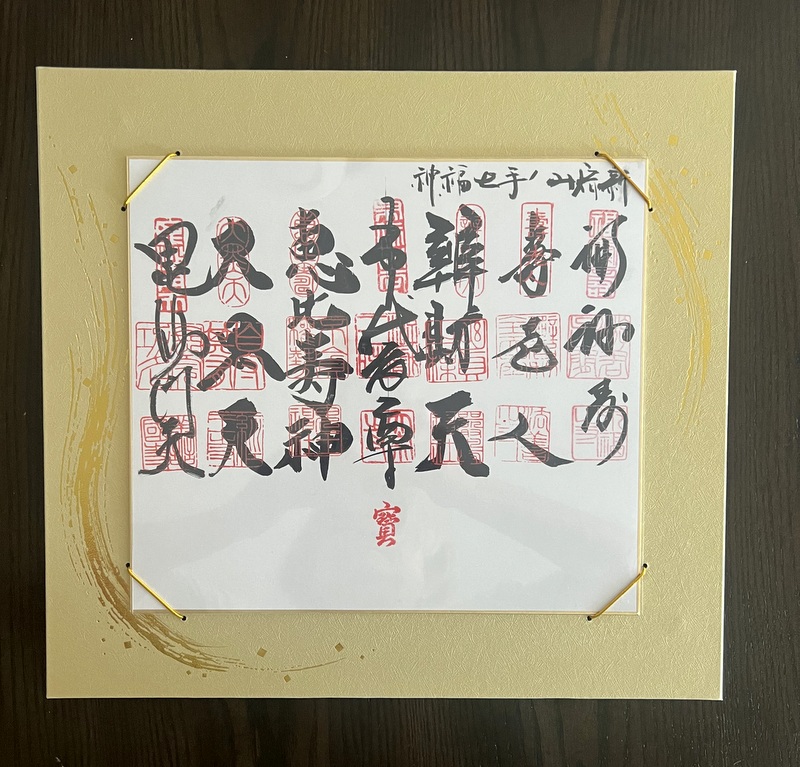 新宿山ノ手七福神
福禄寿
寿老人
辨財天
布袋尊
恵比寿神
大黒天
毘沙門天
寳